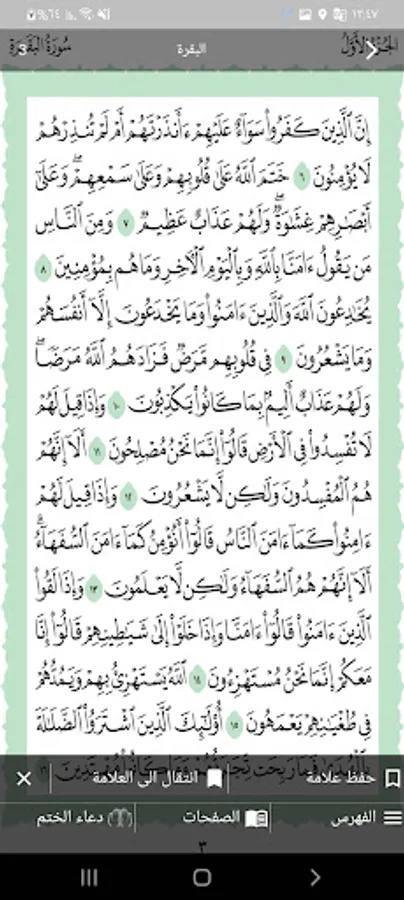 ١٢:٤٧ %٦٤
الجزء الأول البقرة سورة البقرة
3
إِنَّ ٱلَّذِينَ كَفَرُوا۟ سَوَآءٌ عَلَيْهِمْ ءَأَنذَرْتَهُمْ أَمْ لَمْ تُنذِرْهُمْ
لَا يُؤْمِنُونَ ٦ خَتَمَ ٱللَّهُ عَلَىٰ قُلُوبِهِمْ وَعَلَىٰ سَمْعِهِمْ ۖ وَعَلَىٰٓ
أَبْصَٰرِهِمْ غِشَٰوَةٌ ۖ وَلَهُمْ عَذَابٌ عَظِيمٌ ٧ وَمِنَ ٱلنَّاسِ
مَن يَقُولُ ءَامَنَّا بِٱللَّهِ وَبِٱلْيَوْمِ ٱلْءَاخِرِ وَمَا هُم بِمُؤْمِنِينَ ٨
يُخَٰدِعُونَ ٱللَّهَ وَٱلَّذِينَ ءَامَنُوا۟ وَمَا يَخْدَعُونَ إِلَّآ أَنفُسَهُمْ
وَمَا يَشْعُرُونَ ٩ فِى قُلُوبِهِم مَّرَضٌ فَزَادَهُمُ ٱللَّهُ مَرَضًا ۖ
وَلَهُمْ عَذَابٌ أَلِيمٌۢ بِمَا كَانُوا۟ يَكْذِبُونَ ١٠ وَإِذَا قِيلَ لَهُمْ
لَا تُفْسِدُوا۟ فِى ٱلْأَرْضِ قَالُوٓا۟ إِنَّمَا نَحْنُ مُصْلِحُونَ ١١ أَلَآ إِنَّهُمْ
هُمُ ٱلْمُفْسِدُونَ وَلَٰكِن لَّا يَشْعُرُونَ ١٢ وَإِذَا قِيلَ لَهُمْ
ءَامِنُوا۟ كَمَآ ءَامَنَ ٱلنَّاسُ قَالُوٓا۟ أَنُؤْمِنُ كَمَآ ءَامَنَ ٱلسُّفَهَآءُ ۗ
أَلَآ إِنَّهُمْ هُمُ ٱلسُّفَهَآءُ وَلَٰكِن لَّا يَعْلَمُونَ ١٣ وَإِذَا لَقُوا۟
ٱلَّذِينَ ءَامَنُوا۟ قَالُوٓا۟ ءَامَنَّا وَإِذَا خَلَوْا۟ إِلَىٰ شَيَٰطِينِهِمْ قَالُوٓا۟ إِنَّا
مَعَكُمْ إِنَّمَا نَحْنُ مُسْتَهْزِءُونَ ١٤ ٱللَّهُ يَسْتَهْزِئُ بِهِمْ وَيَمُدُّهُمْ
فِى طُغْيَٰنِهِمْ يَعْمَهُونَ ١٥ أُو۟لَٰٓئِكَ ٱلَّذِينَ ٱشْتَرَوُا۟ ٱلضَّلَٰلَةَ
بِٱلْهُدَىٰ فَمَا رَبِحَت تِّجَٰرَتُهُمْ وَمَا كَانُوا۟ مُهْتَدِينَ ١٦
حفظ علامة انتقال الى العلامة
الفهرس الصفحات دعاء الختم
٣